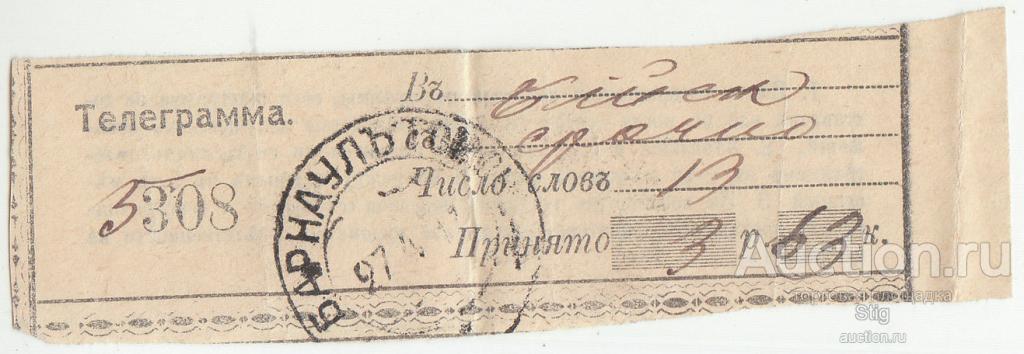 Телеграмма.
5308
Въ Бійск
срочно
Число словъ 13
Принято 3 р. 63 к.
БАРНАУЛЪ ТОМ
27
Auction.ru
торговая площадка
Stig
auction.ru